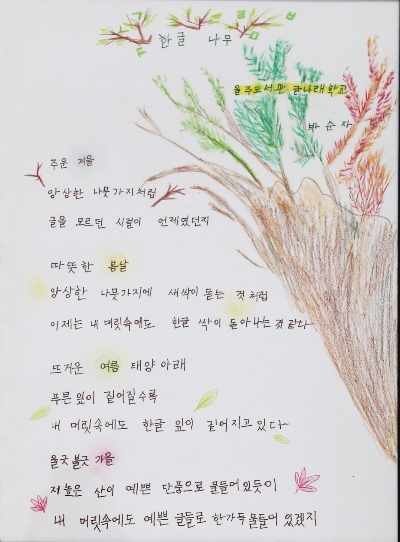 한글 나무
울주도서관 글나래학교
박순자
추운 겨울
앙상한 나뭇가지처럼
글을 모르던 시절이 언제였던지
따뜻한 봄날
앙상한 나뭇가지에 새싹이 돋는 것처럼
이제는 내 머릿속에도 한글 싹이 돋아나는 것 같다
뜨거운 여름 태양 아래
푸른 잎이 짙어질수록
내 머릿속에도 한글 잎이 짙어지고 있다
울긋불긋 가을
저 높은 산이 예쁜 단풍으로 물들어 있듯이
내 머릿속에도 예쁜 글들로 한가득 물들어 있겠지